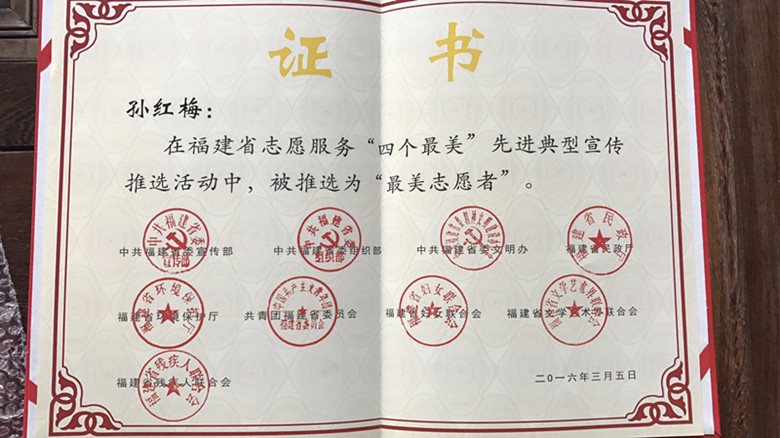 证 书
孙红梅：
在福建省志愿服务“四个最美”先进典型宣传
推选活动中，被推选为“最美志愿者”。
中共福建省委宣传部 中共福建省委组织部 中共福建省委文明办 福建省民政厅
福建省环境保护厅 共青团福建省委员会 福建省妇女联合会 福建省文学艺术界联合会
福建省残疾人联合会
二〇一六年三月五日